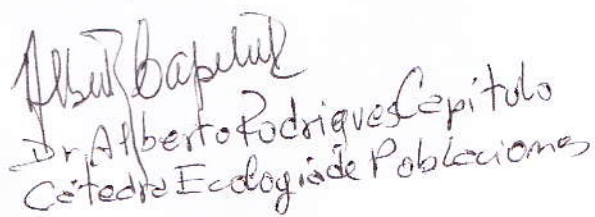 Dr. Alberto Rodrigues Capítulo
Cátedra Ecología de Poblaciones